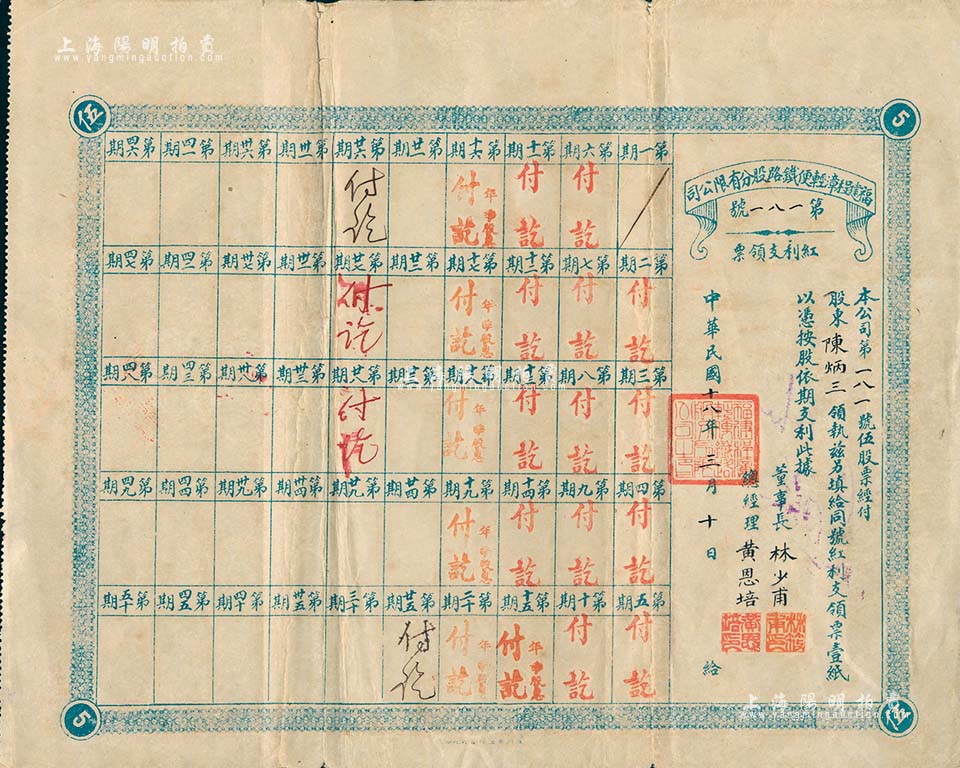 上海陽明拍賣
www.yangmingauction.com
伍
5
福建程漳輕便鐵路股分有限公司
第一八一號
紅利支領票
本公司第一八一號伍股票經付
股東陳炳三領執茲另填給同號紅利支領票壹紙
以憑按股依期支利此據
董事長 林少甫
總經理 黄恩培
中華民國十八年三月十日 給
第一期 第六期 第十一期 第十六期 第廿一期 第廿六期 第卅一期 第卅六期 第四一期 第四六期
付訖 付訖 付訖 付訖
第二期 第七期 第十二期 第十七期 第廿二期 第廿七期 第卅二期 第卅七期 第四二期 第四七期
付訖 付訖 付訖 付訖 付訖
第三期 第八期 第十三期 第十八期 第廿三期 第廿八期 第卅三期 第卅八期 第四三期 第四八期
付訖 付訖 付訖 付訖 付訖
第四期 第九期 第十四期 第十九期 第廿四期 第廿九期 第卅四期 第卅九期 第四四期 第四九期
付訖 付訖 付訖 付訖
第五期 第十期 第十五期 第二十期 第廿五期 第三十期 第卅五期 第四十期 第四五期 第五十期
付訖 付訖 付訖 付訖 付訖
5
伍
上海陽明拍賣
www.yangmingauction.com